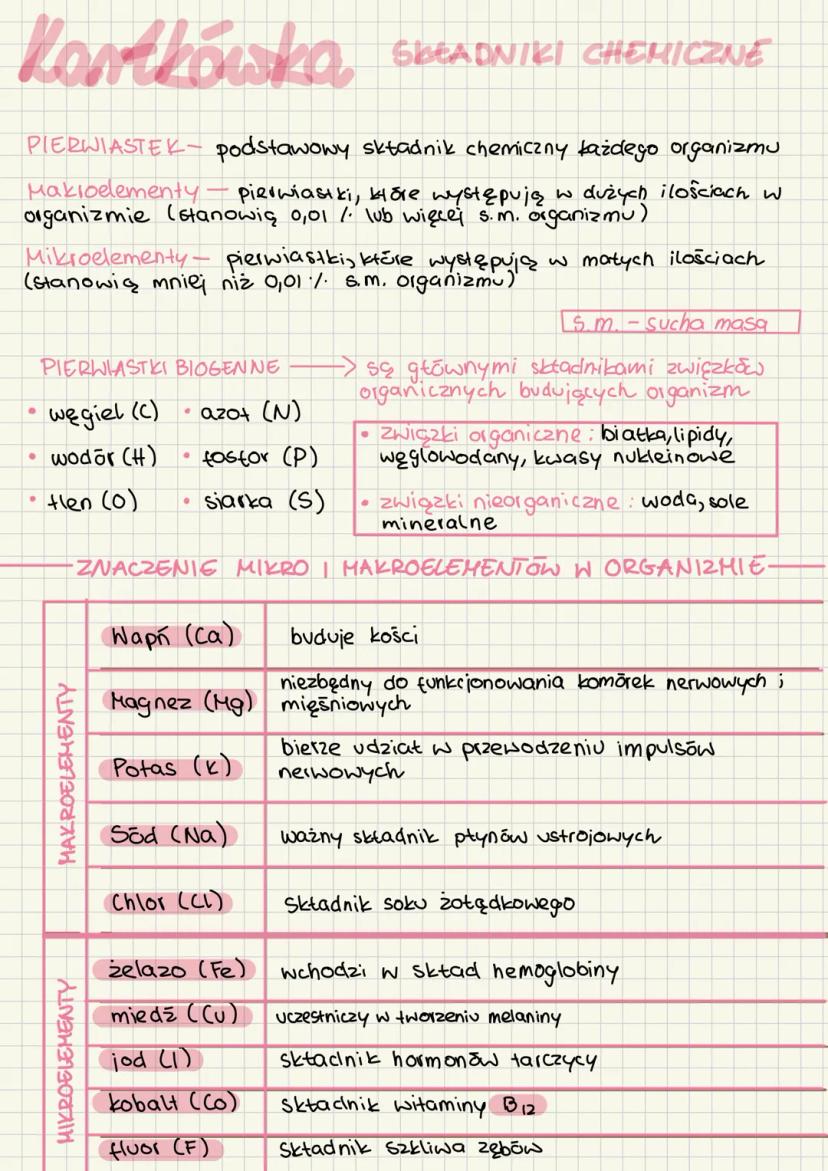 Kartkówka SKŁADNIKI CHEMICZNE
PIERWIASTEK - podstawowy składnik chemiczny każdego organizmu
Makroelementy - pierwiastki, które występują w dużych ilościach w
organizmie (stanowią 0,01 % lub więcej s.m. organizmu)
Mikroelementy - pierwiastki, które występują w małych ilościach
(stanowią mniej niż 0,01 % s.m. organizmu)
s.m. - sucha masa
PIERWIASTKI BIOGENNE → są głównymi składnikami związków
organicznych budujących organizm
• węgiel (C) • azot (N)
• wodór (H) • fosfor (P)
• tlen (O) • siarka (S)
• związki organiczne: białka, lipidy,
węglowodany, kwasy nukleinowe
• związki nieorganiczne: woda, sole
mineralne
ZNACZENIE MIKRO I MAKROELEMENTÓW W ORGANIZMIE
MAKROELEMENTY
Wapń (Ca) buduje kości
Magnez (Mg) niezbędny do funkcjonowania komórek nerwowych i
mięśniowych
Potas (K) bierze udział w przewodzeniu impulsów
nerwowych
Sód (Na) ważny składnik płynów ustrojowych
Chlor (Cl) składnik soku żołądkowego
MIKROELEMENTY
żelazo (Fe) wchodzi w skład hemoglobiny
miedź (Cu) uczestniczy w tworzeniu melaniny
jod (I) składnik hormonów tarczycy
kobalt (Co) składnik witaminy B12
fluor (F) składnik szkliwa zębów